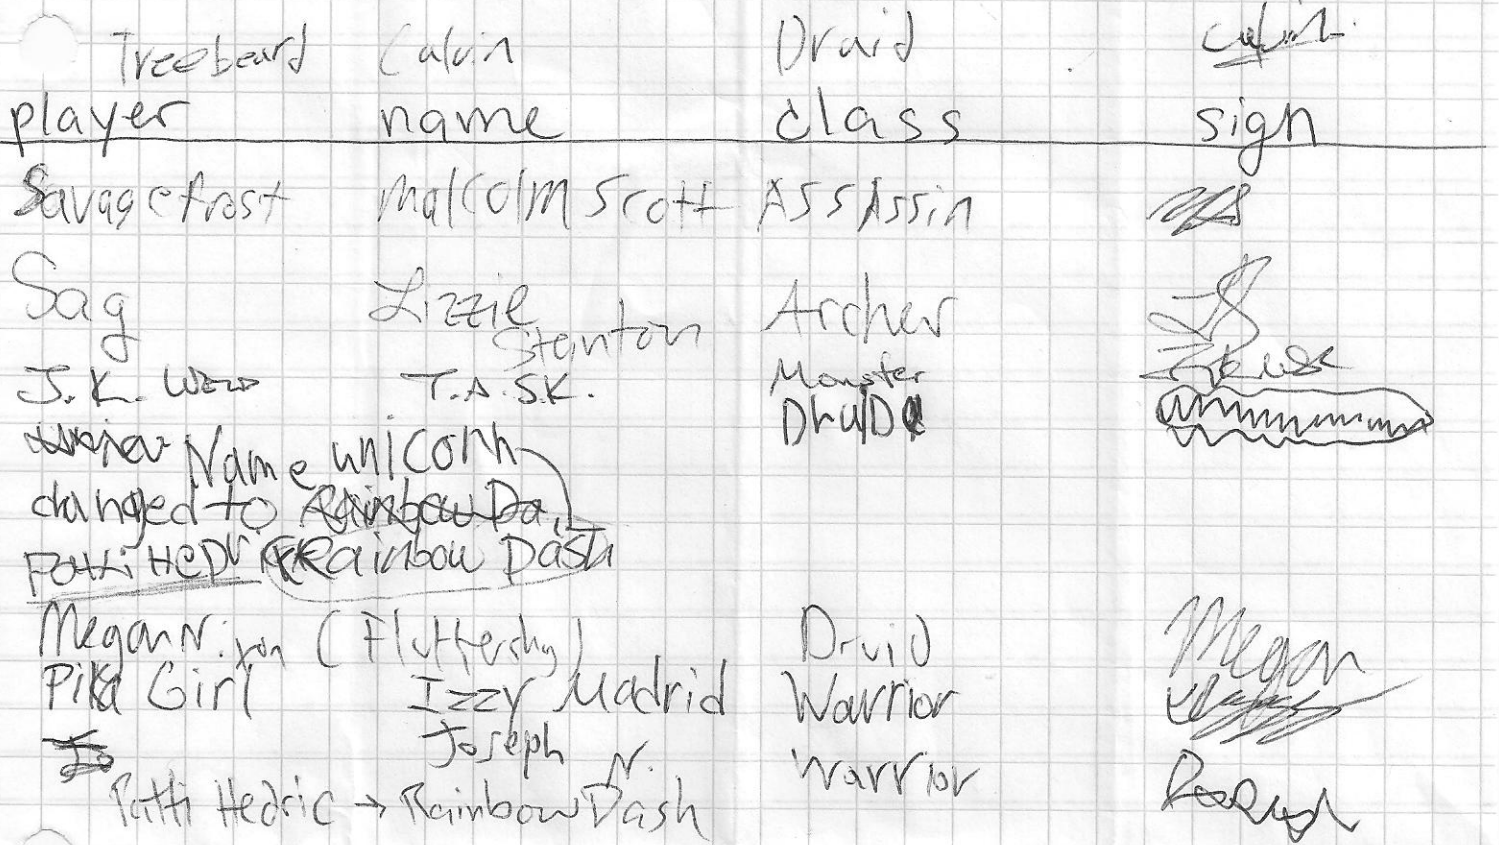 Treebeard Calvin Druid Calvin
player name class sign
Savagefrost Malcolm Scott ASSASSin
Sag Lizzie Archer
Stanton
J.K. T.A.S.K. Monster
Name unicorn
changed to Rainbow Da
Patti Hedric Rainbow Dash
Megan Nixon (Fluttershy) Druid Megan
Pika Girl Izzy Madrid Warrior
Joseph N. Warrior
Patti Hedric → Rainbow Dash